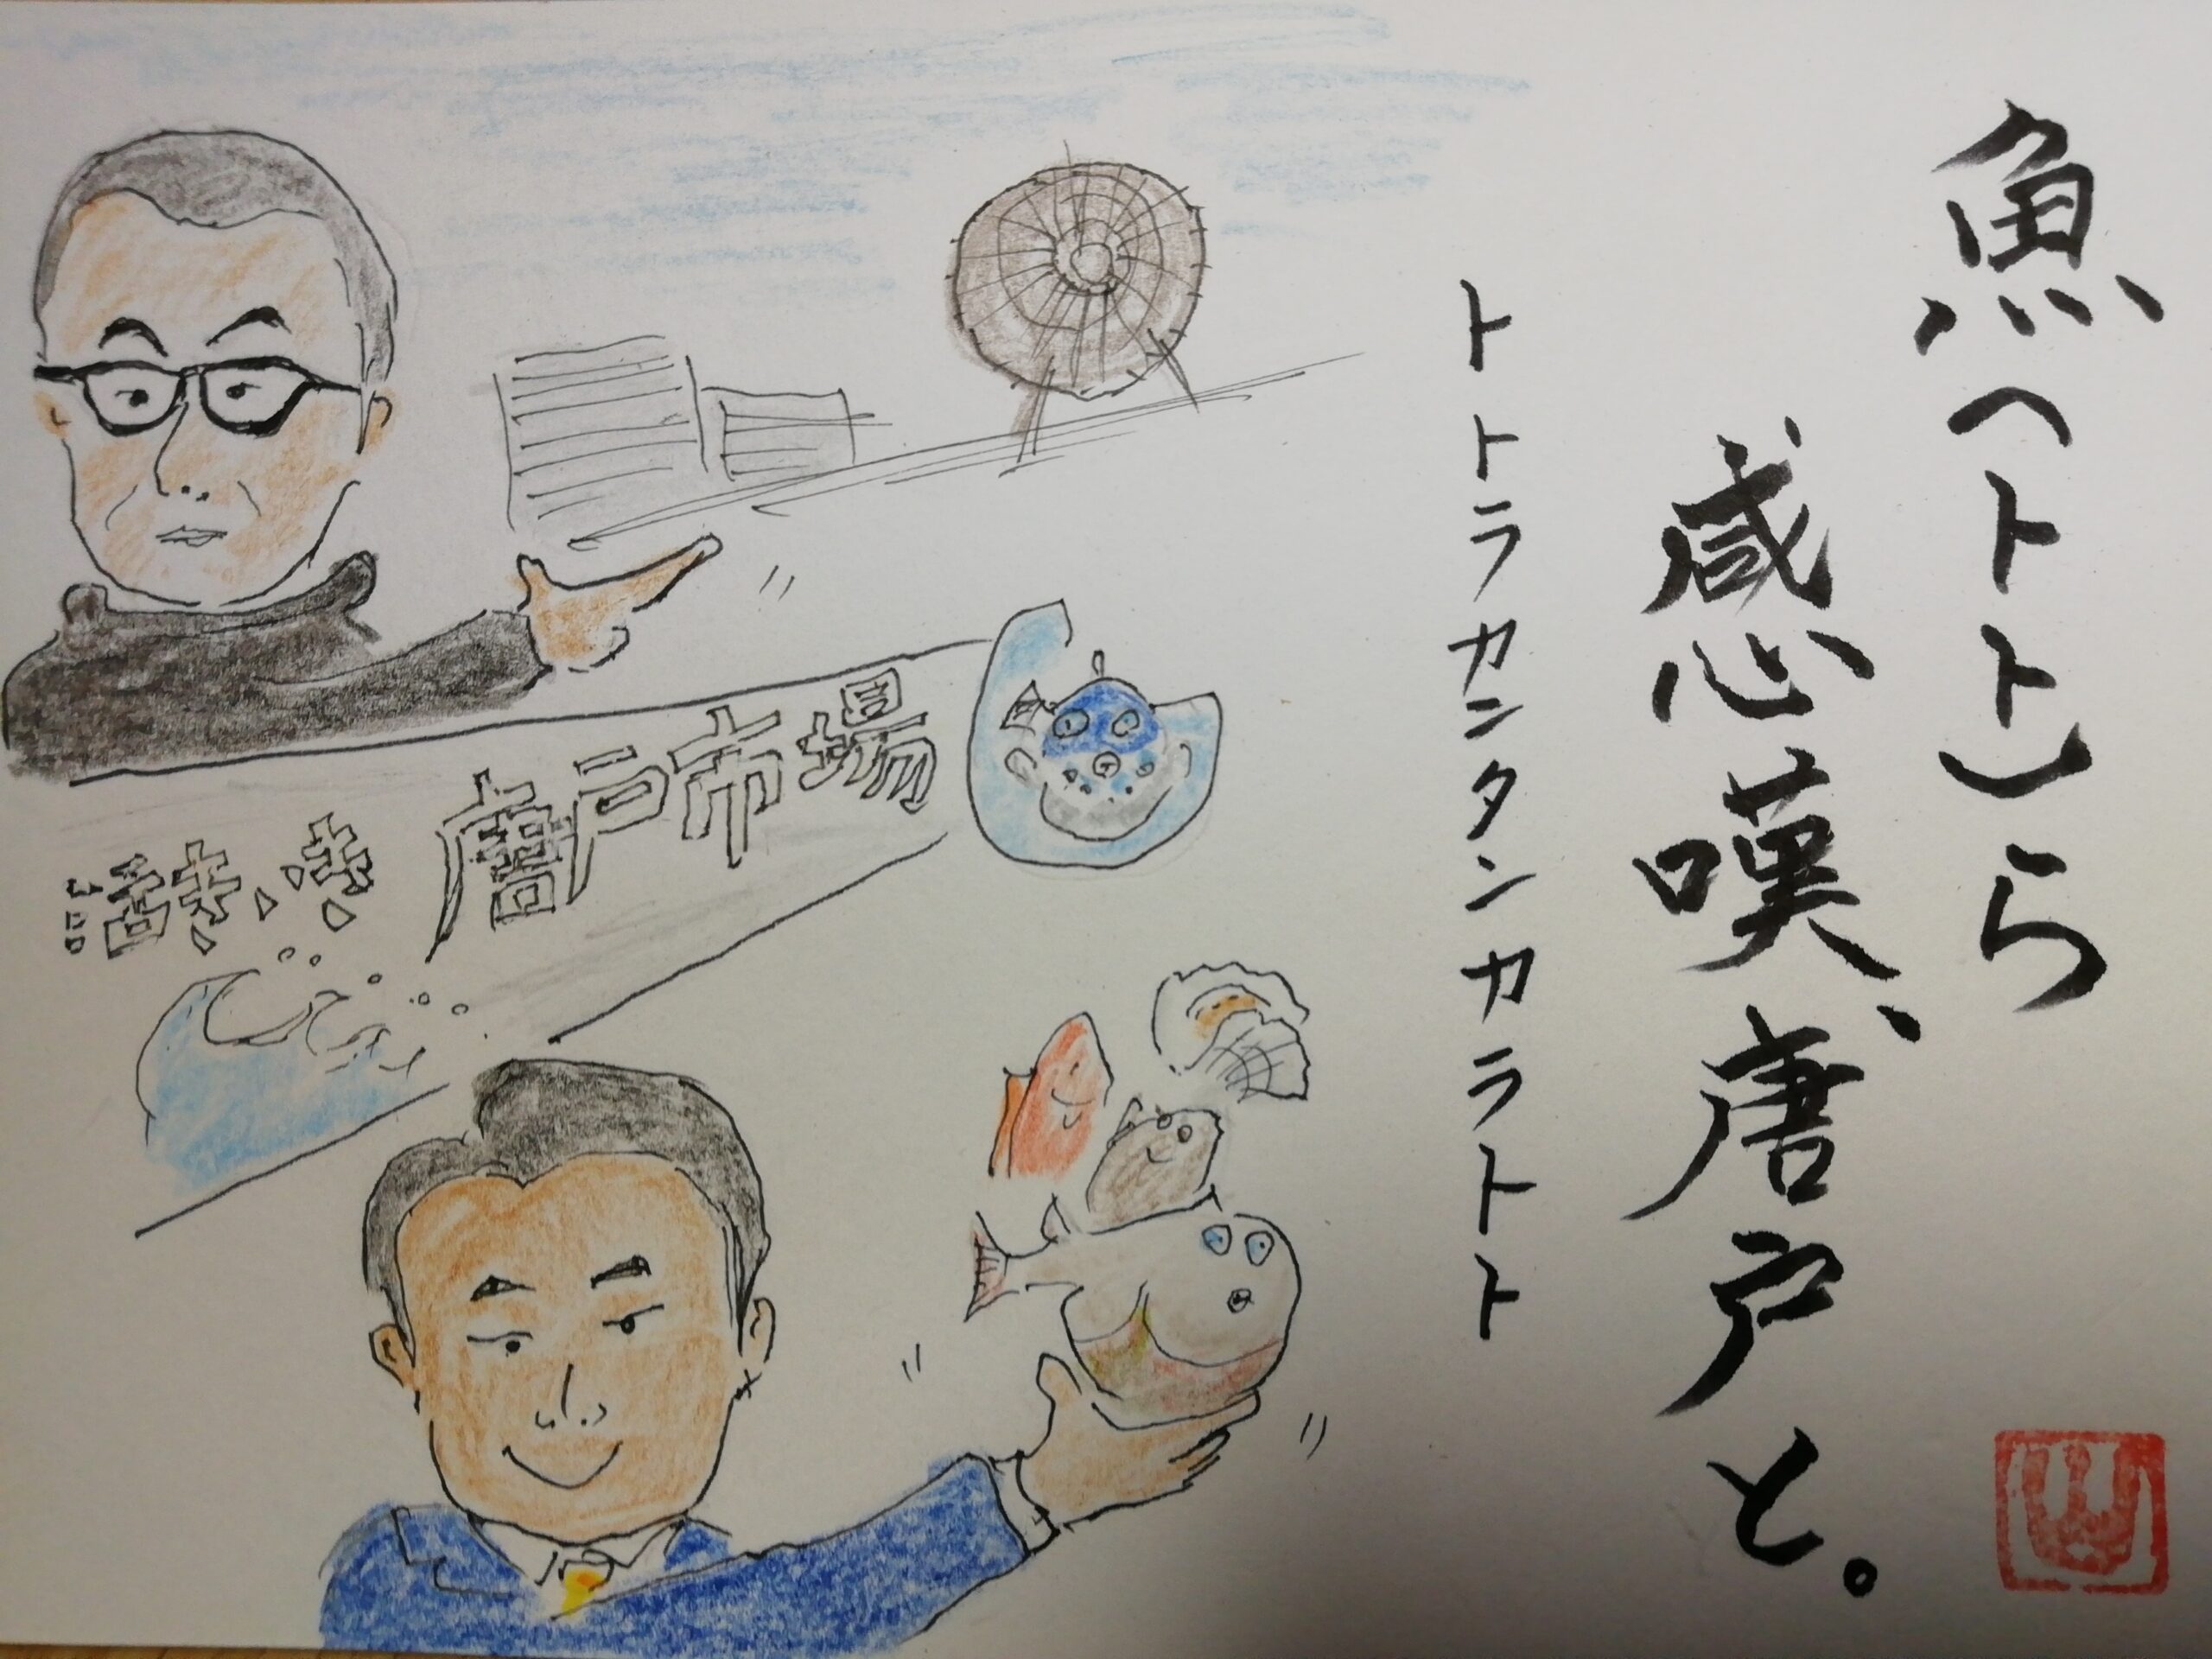 魚(トト)ら
感嘆、唐戸と。
トトラカンタンカラトト
活き活き 唐戸市場
山